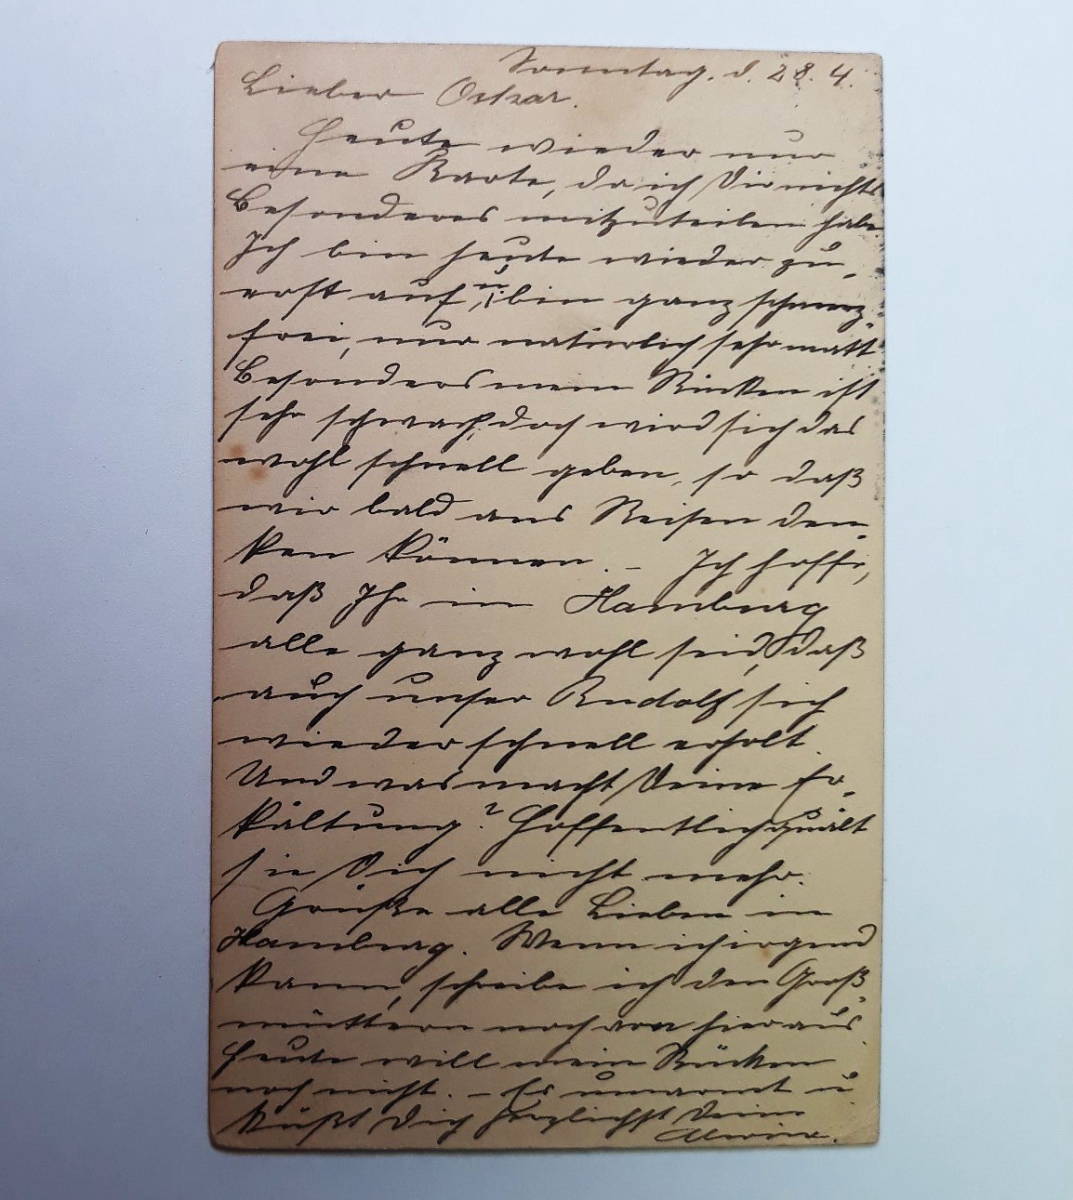 Sonntag, d. 28. 4.
Lieber Oskar.
Heute wieder nur
eine Karte, da ich Dir nichts
Besonderes mitzuteilen habe.
Ich bin heute wieder zu-
erst auf, u. bin ganz schmerz-
frei, nur natürlich sehr matt
Besonders mein Rücken ist
sehr schwach, doch wird sich das
wohl schnell geben, so daß
wir bald ans Reisen den-
ken können. – Ich hoffe,
daß Ihr in Hamburg
alle ganz wohl seid, daß
auch unser Rudolf sich
wieder schnell erholt.
Und was macht Deine Er-
kältung? Hoffentlich quält
sie Dich nicht mehr.
Grüße alle Lieben in
Hamburg. Wenn ich irgend
kann, schreibe ich den Groß-
müttern noch von hier aus.
Heute will mein Rücken
noch nicht. – Es umarmt u.
küßt Dich herzlichst Deine